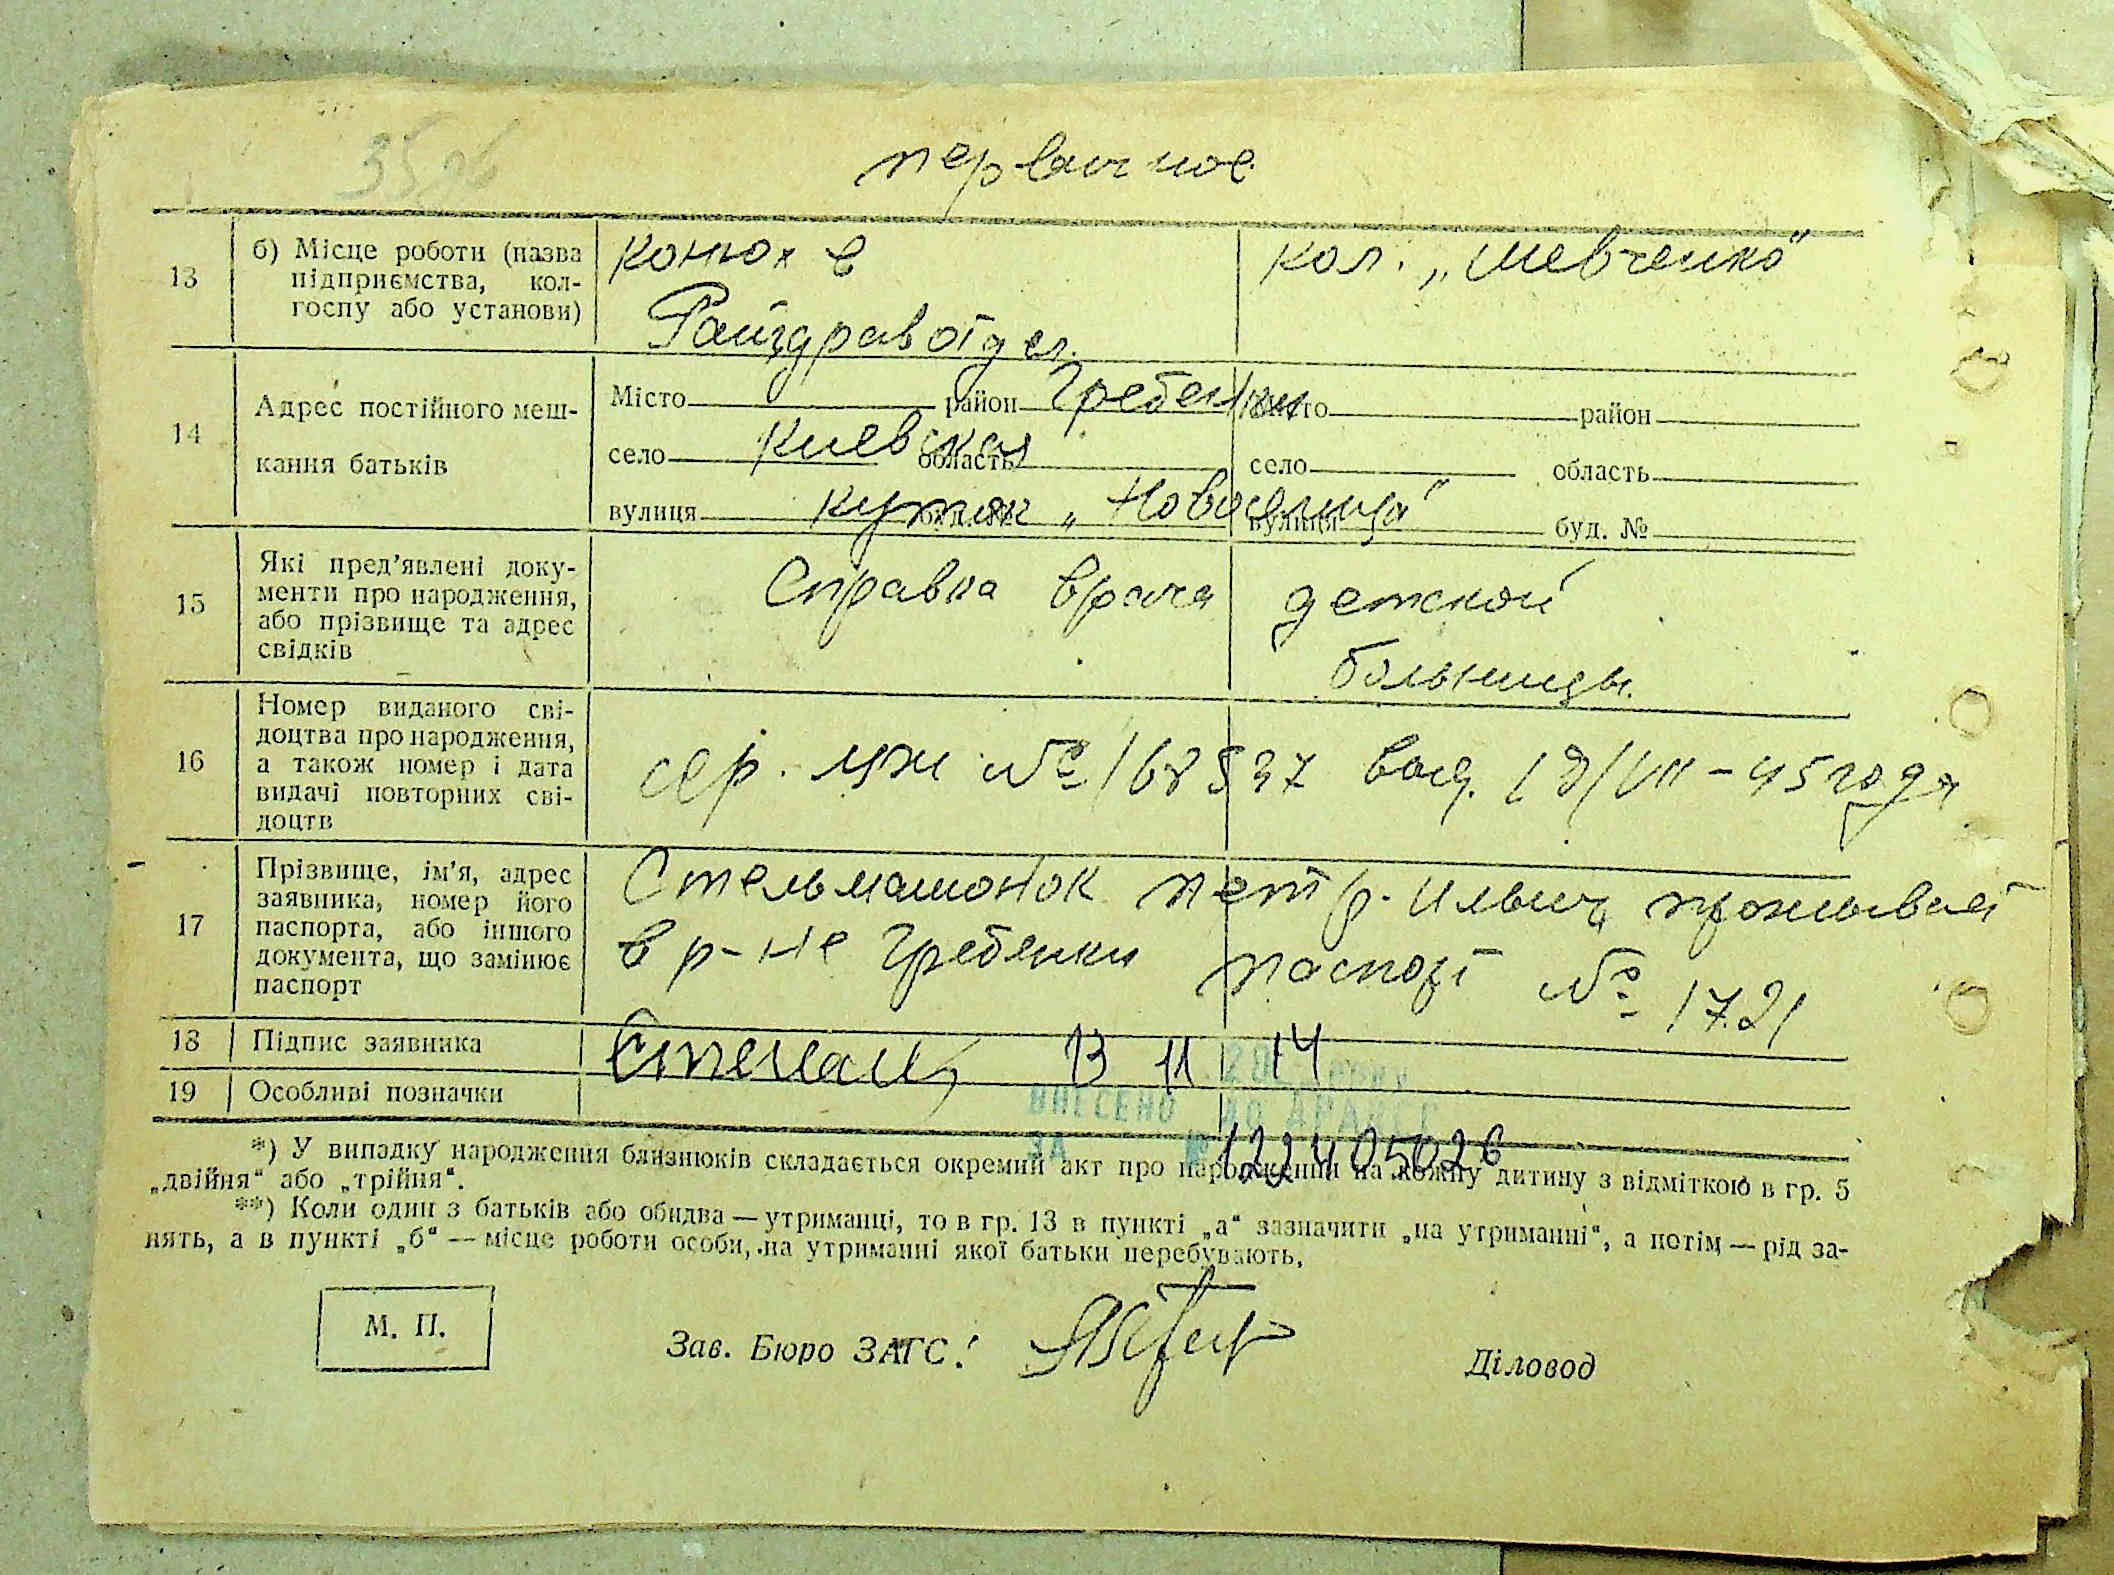 первичное
13
б) Місце роботи (назва
підприємства, кол-
госпу або установи)
конюх в
Райздравотдел.
кол. „Шевченко“
14
Адрес постійного меш-
кання батьків
Місто район Гребенки
село Киевская область
вулиця куток „Новоселица“
Місто район
село область
вулиця буд. №
15
Які пред’явлені доку-
менти про народження,
або прізвище та адрес
свідків
Справка врача детской
больницы.
16
Номер виданого сві-
доцтва про народження,
а також номер і дата
видачі повторних сві-
доцтв
сер. № 168537 выд. 19/VII-45 года
17
Прізвище, ім’я, адрес
заявника, номер його
паспорта, або іншого
документа, що замінює
паспорт
Стельмашонок Петр. Ильич проживает
в р-не Гребенки паспорт № 1721
18
Підпис заявника
13 11 14
19
Особливі позначки
ВНЕСЕНО ДО ДРАЦСГ
ЗА № 122405026
*) У випадку народження близнюків складається окремий акт про народження на кожну дитину з відміткою в гр. 5
„двійня“ або „трійня“.
**) Коли один з батьків або обидва — утриманці, то в гр. 13 в пункті „а“ зазначити „на утриманні“, а потім — рід за-
нять, а в пункті „б“ — місце роботи особи, на утриманні якої батьки перебувають.
М. П.
Зав. Бюро ЗАГС:
Діловод